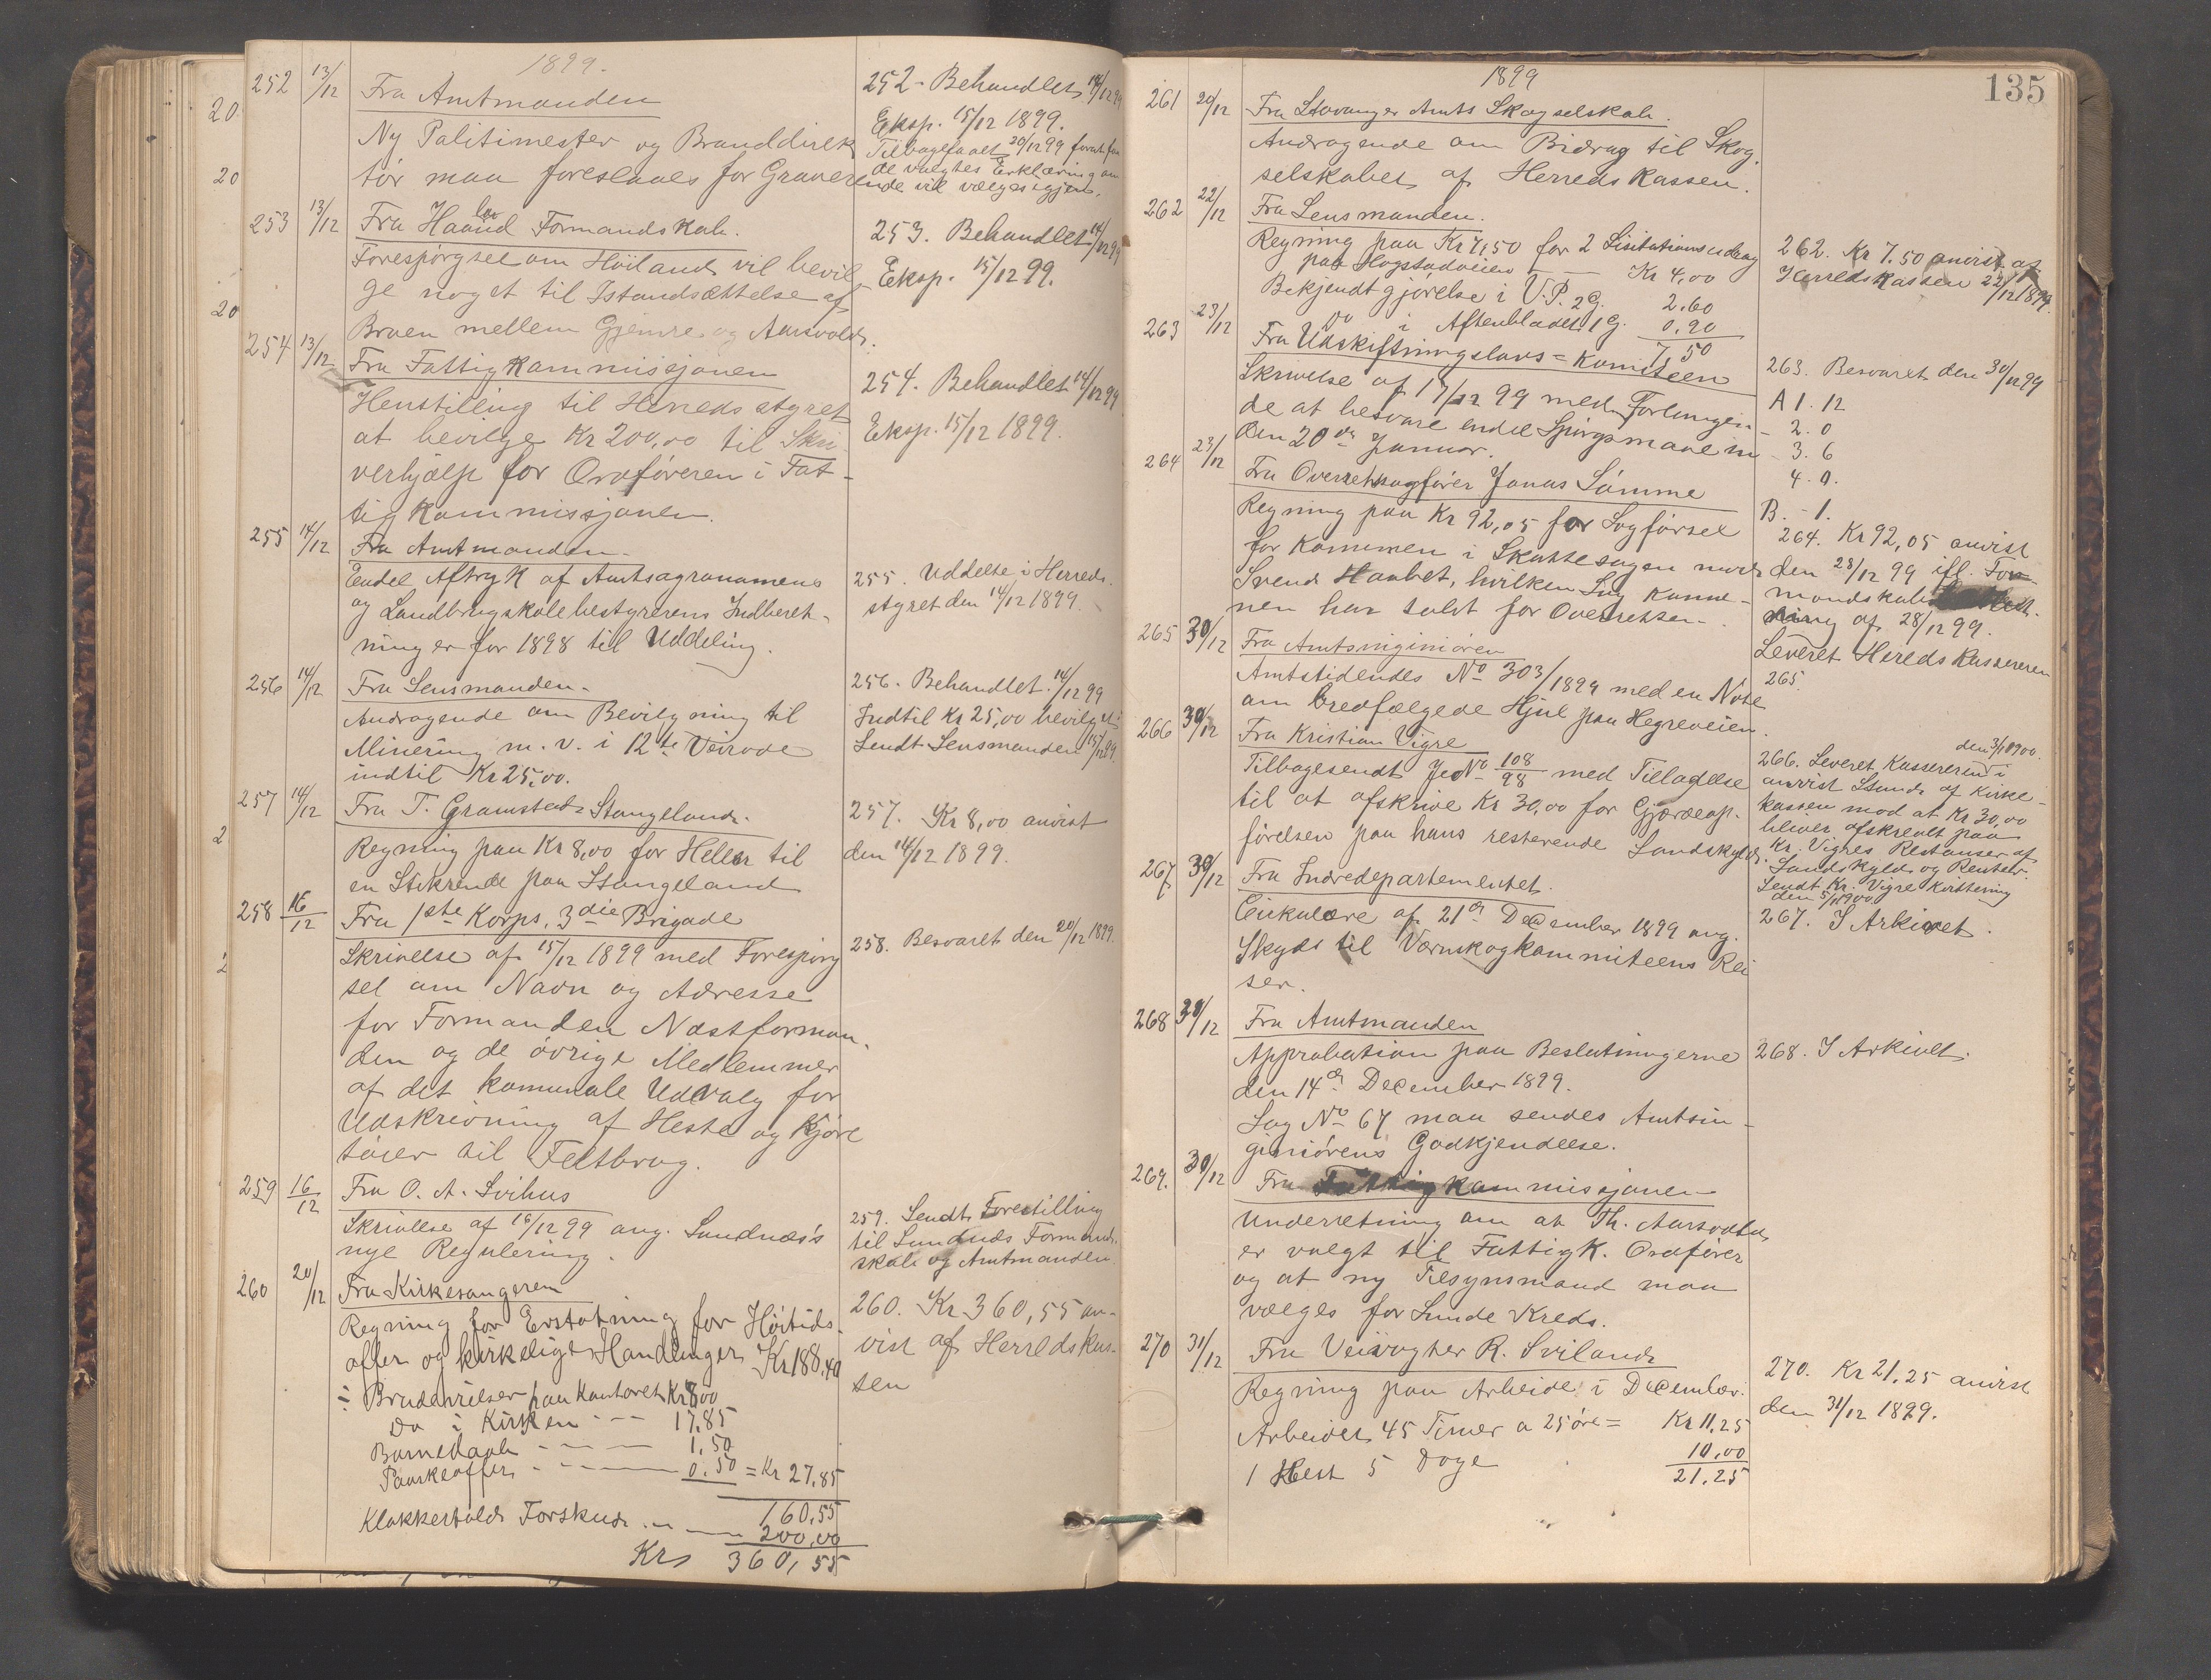 1899.
252 13/12 Fra Amtmanden
Ny Politimester og Branddirek
tør maa foreslaaes for Graverende
252 - Behandlet 14/12 99
Eksp. 15/12 1899.
Tilbagefaaet 20/12 99
de valgtes Erklæring om
de vil vælges igjen.
253 13/12 Fra Haaland Formandskab.
Forespørgsel om Høiland vil bevil
ge noget til Istandsættelse af
Broen mellem Gjemre og Aarsvold.
253. Behandlet 14/12 99
Eksp. 15/12 99.
254 13/12 Fra Fattigkommissjonen
Henstilling til Herredsstyret
at bevilge Kr 200,00 til Skri
verhjælp for Ordføreren i Fat-
tigkommissjonen.
254. Behandlet 14/12 99
Eksp. 15/12 1899.
255 14/12 Fra Amtmanden
Endel Aftryk af Amtsagronomens
og Landbrugskolebestyrerens Indberet-
ninger for 1898 til Uddeling.
255. Uddelte i Herreds-
styret den 14/12 1899.
256 14/12 Fra Lensmanden.
Andragende om Bevilgning til
Minering m. v. i 12te Veirode
indtil Kr 25,00.
256. Behandlet 14/12 99
Indtil Kr 25,00 bevilget
Sendt Lensmanden 15/12 99.
257 14/12 Fra T. Gramstad Stangeland.
Regning paa Kr 8,00 for Heller til
en Stikrende paa Stangeland
257. Kr 8,00 anvist
den 14/12 1899.
258 16/12 Fra 1ste Korps, 3die Brigade
Skrivelse af 15/12 1899 med Forespørg
sel om Navn og Adresse
for Formanden Næstforman-
den og de øvrige Medlemmer
af det komunale Udvalg for
Udskrivning af Heste og Kjøre
tøier til Feltbrug.
258. Besvaret den 20/12 1899.
259 16/12 Fra O. A. Svihus
Skrivelse af 16/12 99 ang. Sandnæs's
nye Regulering.
259. Sendt Forestilling
til Formand-
skab og Amtmanden.
260 20/12 Fra Kirkesangeren
Regning for Erstatning for Høitids-
offer og kirkelige Handlinger Kr 188,40
÷ Brudevielser paa Kontoret Kr 8,00
Do i Kirken - - 17,85
Barnedaab - - - 1,50
Paaskeoffer - - - 0,50 = Kr 27,85
160,55
Klokkerhold Forskud - - 200,00
Krs 360,55
260. Kr 360,55 an-
vist af Herredskas-
sen
1899
135
261 20/12 Fra Stavanger Amts Skogselskab.
Andragende om Bidrag til Skog-
selskabet af Herredskassen.
262 22/12 Fra Lensmanden.
Regning paa Kr 7,50 for 2 Lisitationsudrag
paa Hogstadveien - - Kr 4,00
Bekjendtgjørelse i V.P. 2 G. 2.60
Do i Aftenbladet 1 G. 0,90
7,50
262. Kr 7.50 anvist af
Herredskassen 22/12 1899.
263 23/12 Fra Udskiftningslovs=Komiteen
Skrivelse af 17/12 99 med Forlangen-
de at besvare endel Spørgsmaale in
den 20de Januar.
263. Besvaret den 30/12 99
A 1. 12
- 2. 0
- 3. 6
4. 0.
B. - 1.
264 23/12 Fra Overretssagfører Jonas Sømme
Regning paa Kr 92,05 for Sagførsel
for Kommunen i Skattesagen mod
Svend Haabet, hvilken Sag Kommu-
nen har tabt for Overretten.
264. Kr 92,05 anvist
den 28/12 99 ifl. For-
mandskabs
ning af 28/12 99.
Leveret Heredskassereren
265 30/12 Fra Amtsingeniøren
Amtstidendes No 303/1899 med en Note
om bredfælgede Hjul paa Hegreveien.
265.
266 30/12 Fra Kristian Vigre
Tilbagesendt J. No 108/98 med Tilladelse
til at afskrive Kr 30,00 for Gjærdeop-
førelsen paa hans resterende Landskyld.
den 3/1 1900.
266. Leveret Kassereren i
anvist Stand af Kirke-
kassen mod at Kr 30,00
bliver afskrevet paa
Kr. Vigres Restanser af
Landskyld og Renter.
Sendt Kr. Vigre Kvittering
den 5/1 1900
267 30/12 Fra Indredepartementet.
Cirkulære af 21de December 1899 ang.
Skyds til Værnskogkommiteens Rei
ser.
267. I Arkivet.
268 30/12 Fra Amtmanden
Approbation paa Beslutningerne
den 14de December 1899.
Sag No 67 maa sendes Amtsin-
geniørens Godkjendelse.
268. I Arkivet.
269. 30/12 Fra Fattigkommissjonen
Underretning om at Th. Aarsvold
er valgt til Fattigk. Ordfører
og at ny Tilsynsmand maa
vælges for Lunde Kreds.
270 31/12 Fra Veivogter R. Sviland
Regning paa Arbeide i December.
Arbeidet 45 Timer a 25 øre = Kr 11,25
1 Hest 5 Dage 10,00
21,25
270. Kr 21,25 anvist
den 31/12 1899.